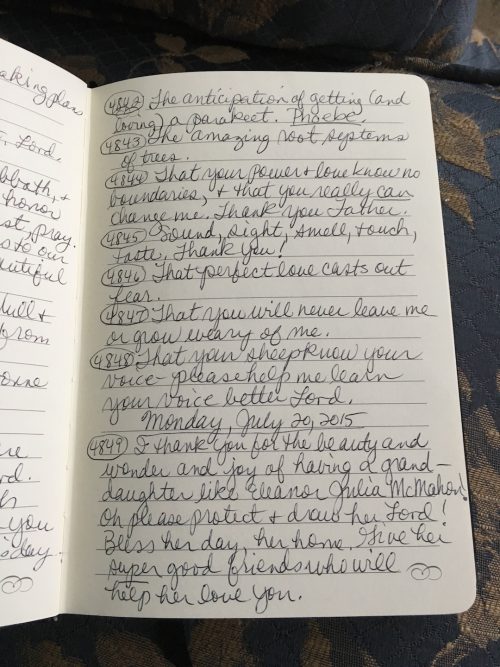 aking plans
Lord.
bbath, +
honor
st, pray.
aste our
autiful
from
ord.
you
day
4842 The anticipation of getting (and
loving) a parakeet. Phoebe.
4843 The amazing root systems
of trees.
4844 That your power + love know no
boundaries, + that you really can
change me. Thank you Father.
4845 Sound, sight, smell, touch,
taste. Thank you!
4846 That perfect love casts out
fear.
4847 That you will never leave me
or grow weary of me.
4848 That your sheep know your
voice - please help me learn
your voice better Lord.
Monday, July 20, 2015
4849 I thank you for the beauty and
wonder and joy of having a grand-
daughter like Eleanor Julia McMahon!
Oh please protect + draw her Lord!
Bless her day, her home, Give her
super good friends who will
help her love you.